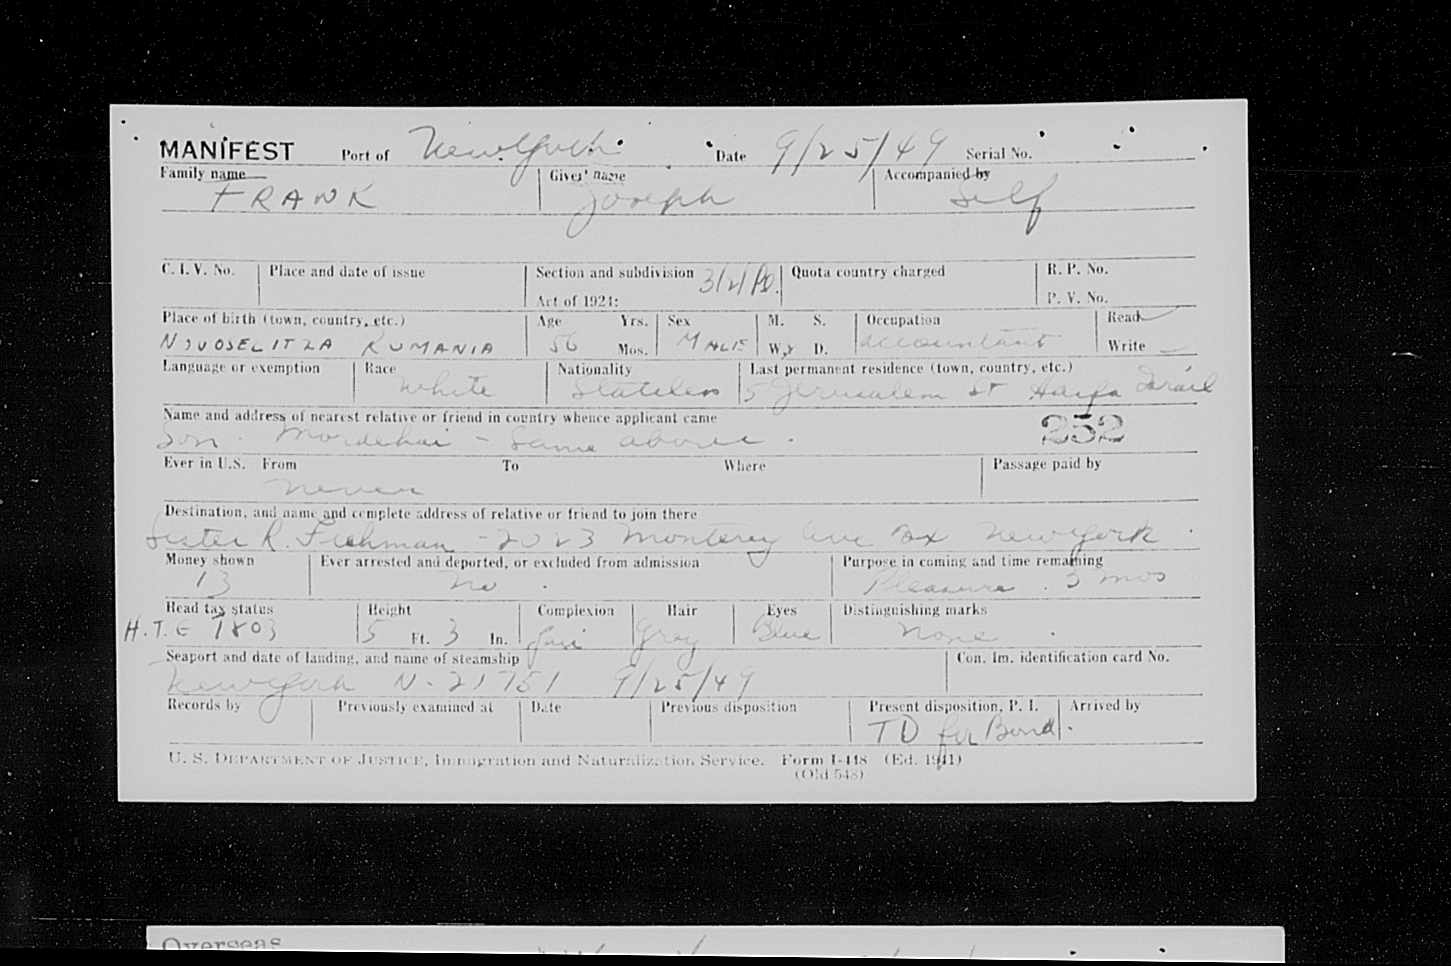 MANIFEST Port of New York Date 9/25/49 Serial No.
Family name Given name Accompanied by
FRANK Joseph Self
C. I. V. No. Place and date of issue Section and subdivision 3/2/ Quota country charged R. P. No.
Act of 1924: P. V. No.
Place of birth (town, country, etc.) Age Yrs. Sex M. S. Occupation Read
NOVOSELITZA RUMANIA 56 Mos. MALE W. D. accountant Write
Language or exemption Race Nationality Last permanent residence (town, country, etc.)
White Stateless 5 Jerusalem St Haifa Israel
Name and address of nearest relative or friend in country whence applicant came
Son. Mordehai - Same above. 252
Ever in U.S. From To Where Passage paid by
never
Destination, and name and complete address of relative or friend to join there
Sister R. Fichman - 2023 Monterey Ave Bx New York
Money shown Ever arrested and deported, or excluded from admission Purpose in coming and time remaining
13 no. Pleasure. 3 mos
Head tax status Height Complexion Hair Eyes Distinguishing marks
H.T.E 1803 5 Ft. 3 In. fair Gray Blue none.
Seaport and date of landing, and name of steamship Con. Im. identification card No.
New York N-21751 9/25/49
Records by Previously examined at Date Previous disposition Present disposition, P. I. Arrived by
TD for Bond.
U. S. DEPARTMENT OF JUSTICE, Immigration and Naturalization Service. Form I-448 (Ed. 1941)
(Old 548)
Overseas